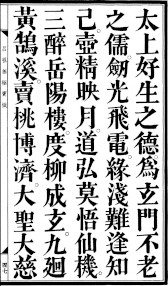 太上好生之德爲玄門不老
之儒劒光飛電緣淺難逢知
己壺精映月道弘莫悟仙機
三醉岳陽樓度柳成玄九廻
黃鵠溪賣桃博濟大聖大慈
四七